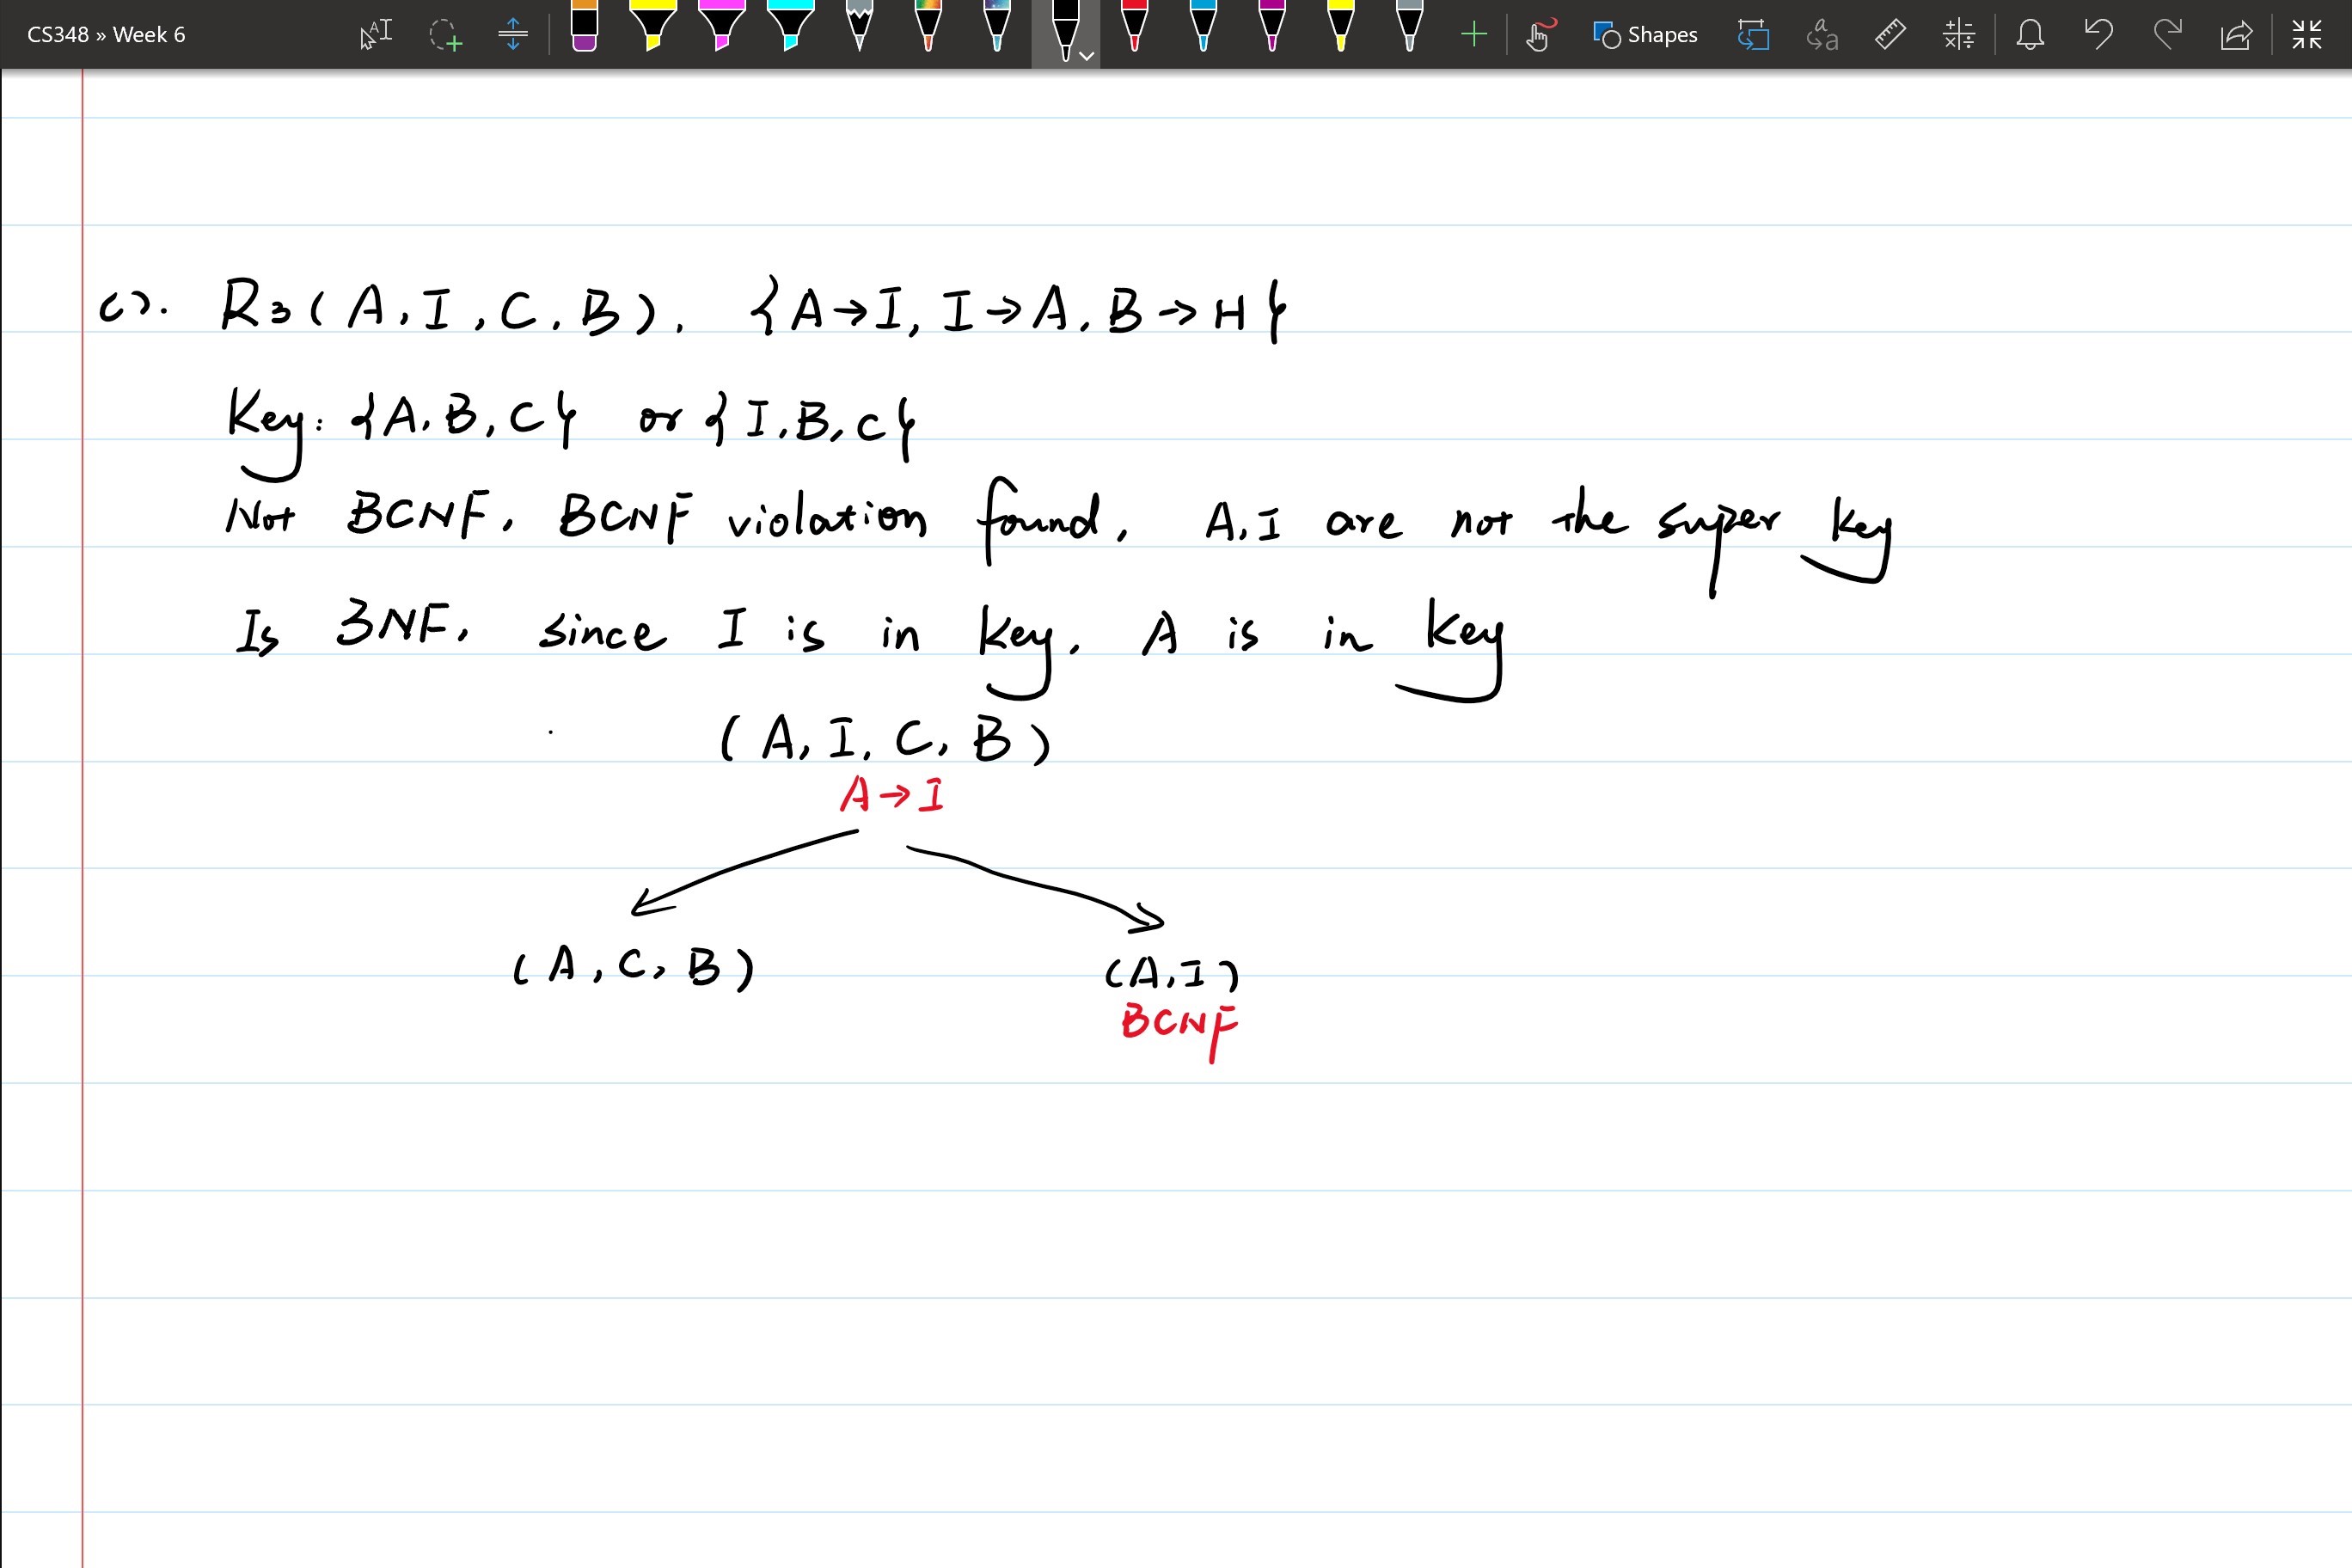 CS348 » Week 6
Shapes
c). R3(A, I, C, B). {A→I, I→A, B→H}
Key: {A, B, C} or {I, B, C}
Not BCNF, BCNF violation found, A, I are not the super key
Is 3NF, since I is in key, A is in key
(A, I, C, B)
A→I
(A, C, B) (A, I)
BCNF